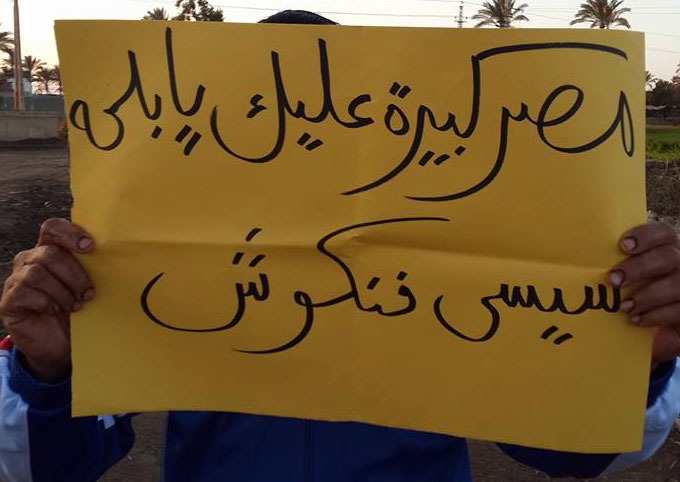 مصر كبيرة عليك يا بلحه
سيسي فنكوش